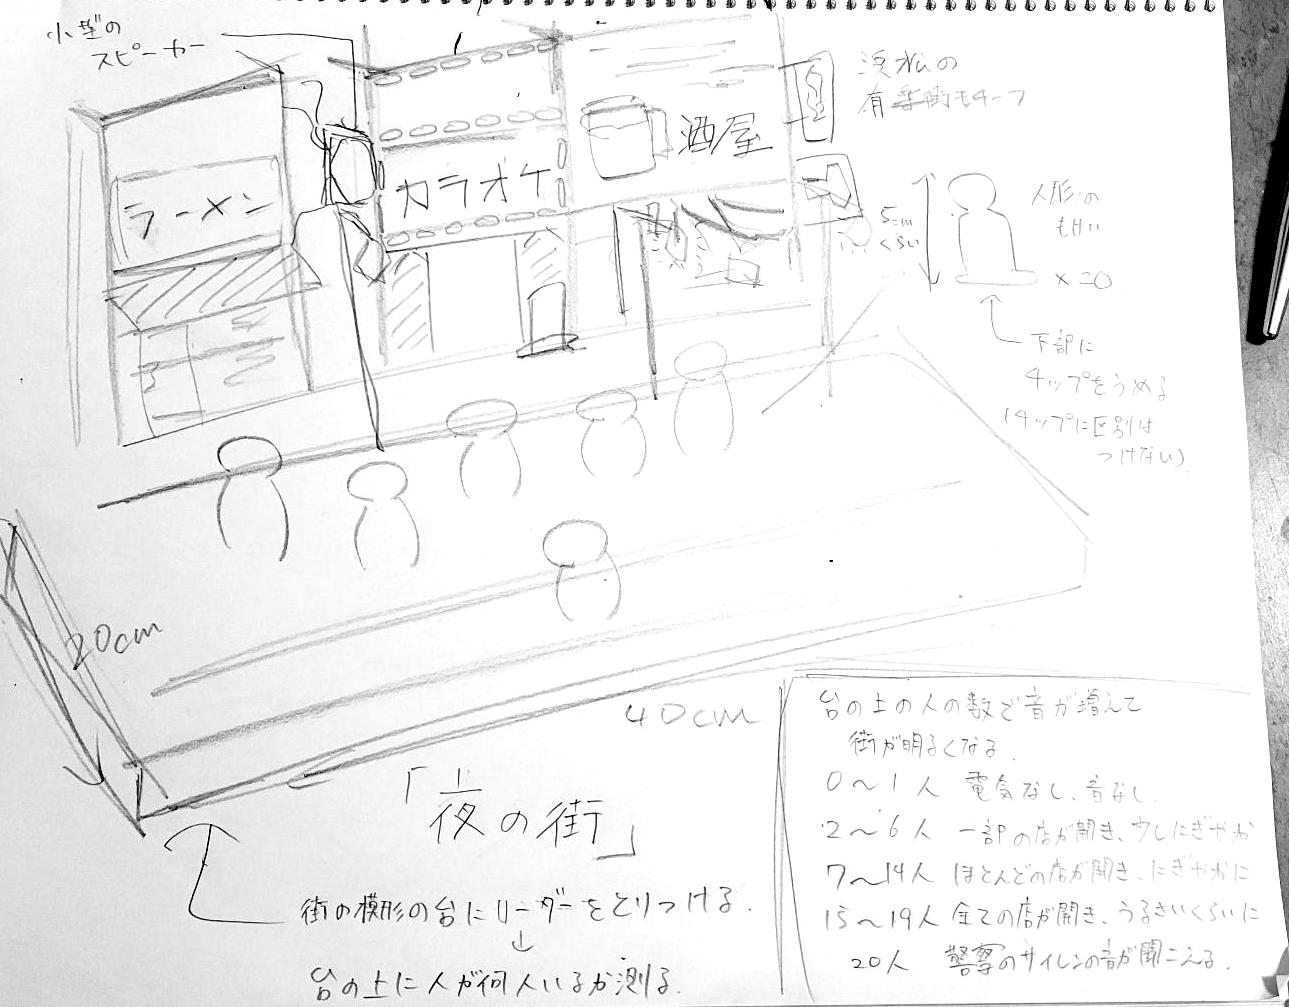 小型の
スピーカー
ラーメン
カラオケ
酒屋
浜松の
有楽街モチーフ
5cm
くらい
人形の
もけい
×20
下部に
チップをうめる
(チップに区別は
つけない)
20cm
40cm
「夜の街」
街の模形の台にリーダーをとりつける.
↓
台の上に人が何人いるか測る.
台の上の人の数で音が増えて
街が明るくなる.
0〜1人 電気なし、音なし.
2〜6人 一部の店が開き、少しにぎやか
7〜14人 ほとんどの店が開き、にぎやかに
15〜19人 全ての店が開き、うるさいくらいに
20人 警察のサイレンの音が聞こえる.